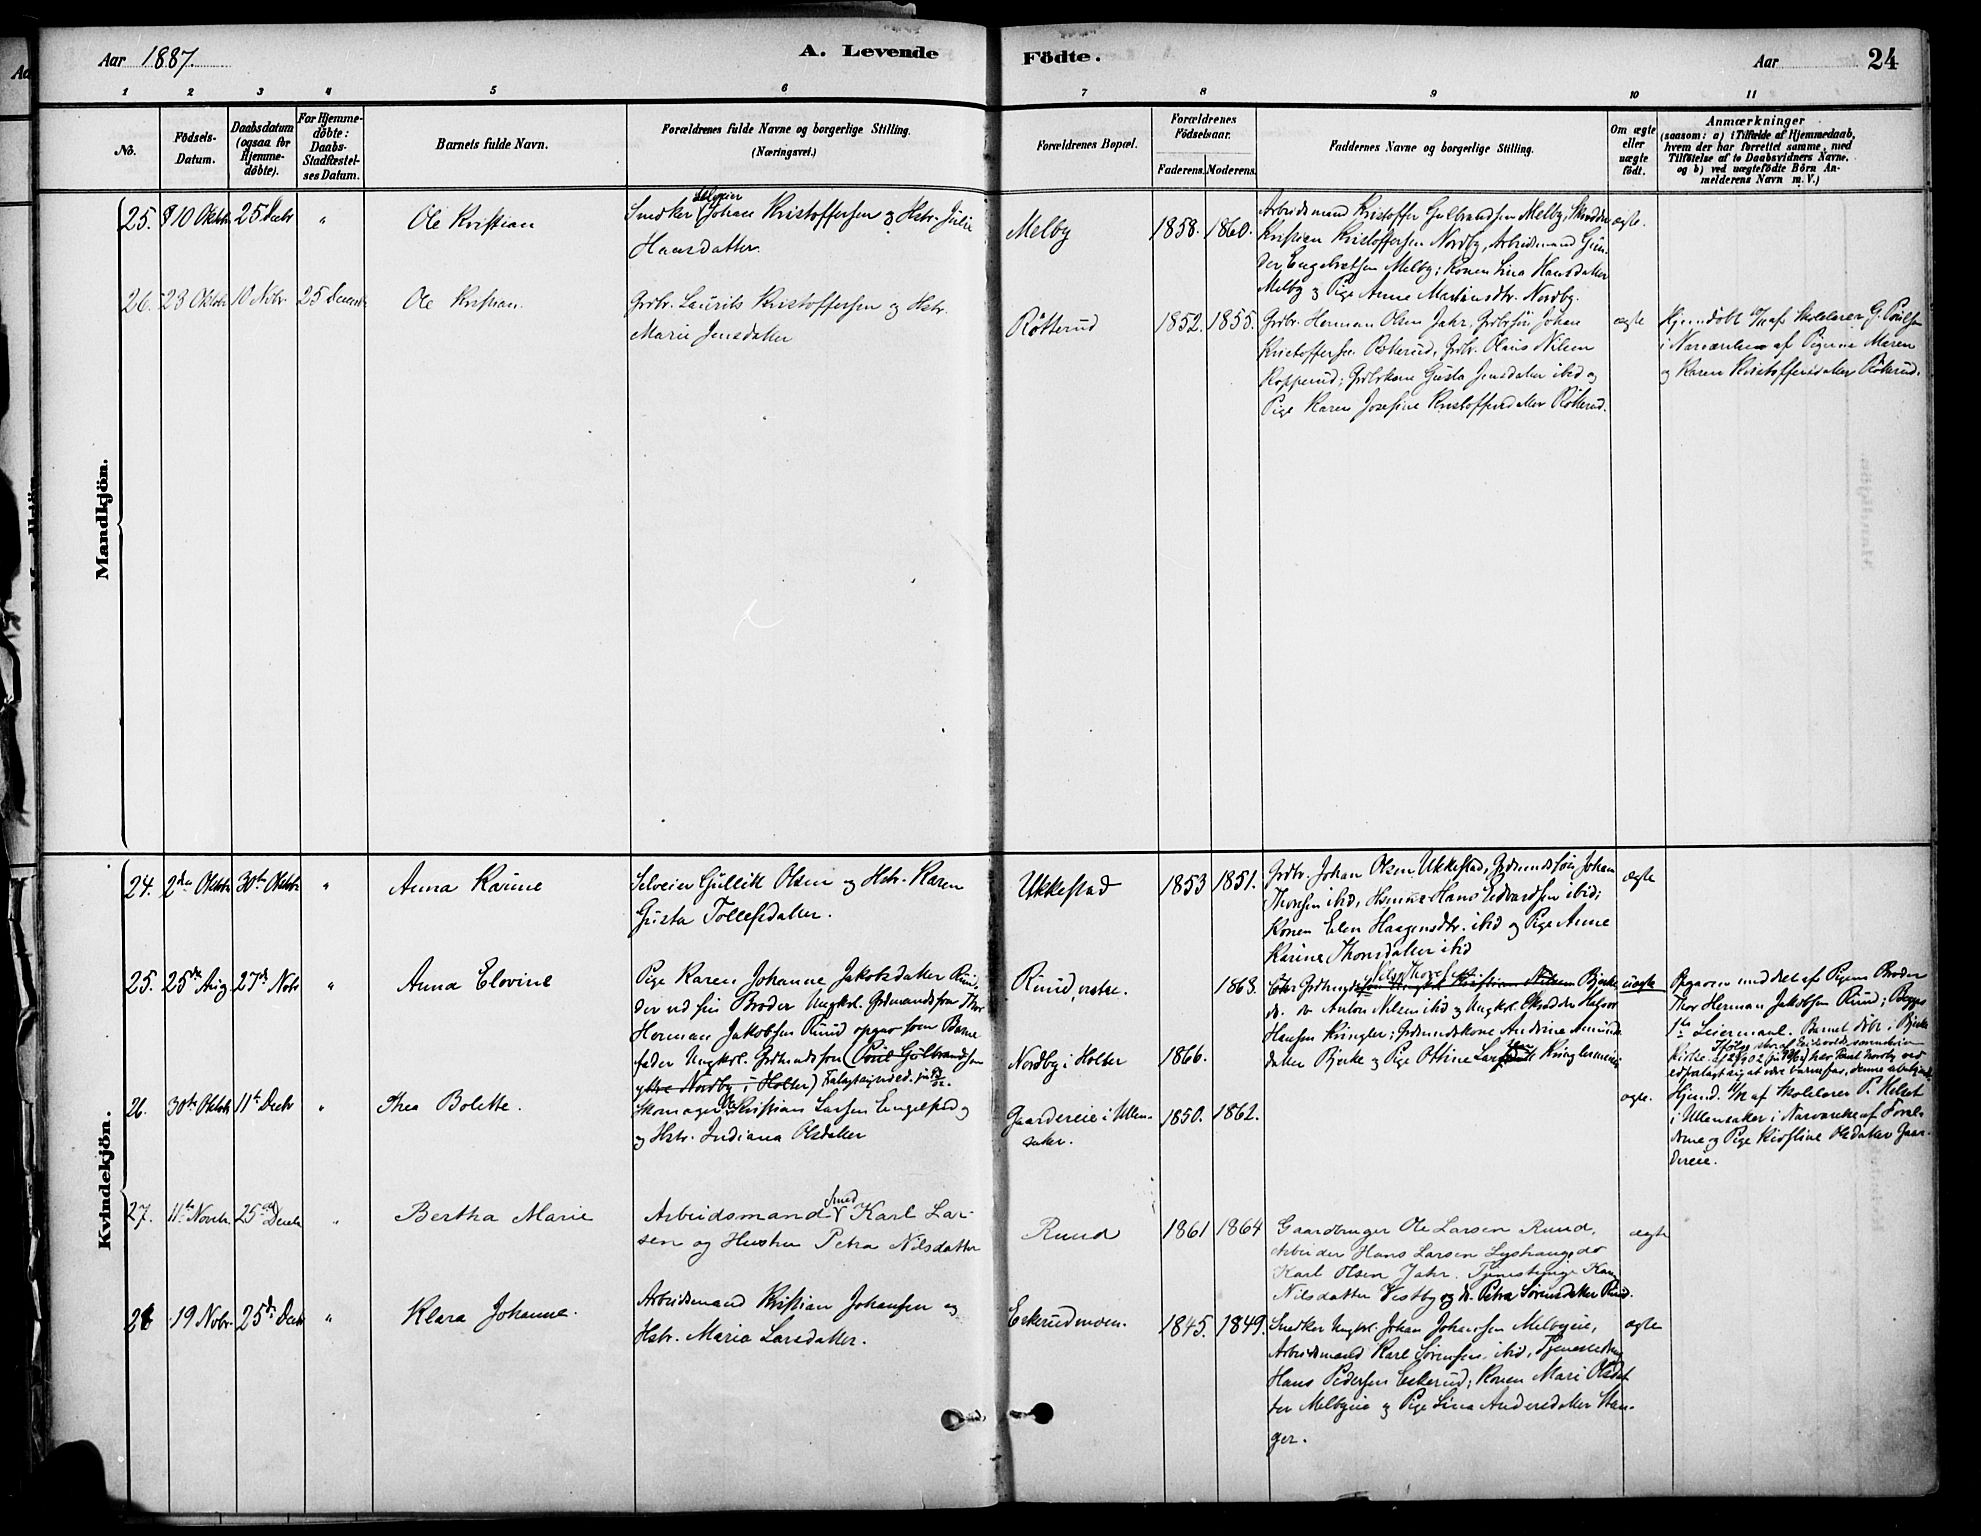 Aar 1887. A. Levende Födte. Aar 24
1 2 3 4 5 6 7 8 9 10 11
No.
Födsels-Datum.
Daabsdatum (ogsaa for Hjemme-döbte).
For Hjemme-döbte: Daabs-Stadfæstel-ses Datum.
Barnets fulde Navn.
Forældrenes fulde Navne og borgerlige Stilling.
(Næringsvei.)
Forældrenes Bopæl.
Forældrenes Födselsaar.
Faderens. Moderens.
Faddernes Navne og borgerlige Stilling.
Om ægte eller uægte födt.
Anmærkninger
(saasom: a) i Tilfælde af Hjemmedaab,
hvem der har forrettet samme, med
Tilföielse af to Daabsvidners Navne.
og b) ved uægtefödte Börn An-
melderens Navn m. V.)
Mandkjön.
25. 10 Oktbr 25 Decbr " Ole Kristian
Snedker Johan Kristoffersen og Hstr. Julie
Hansdatter.
Melby 1858. 1860.
Arbeidsmand Kristoffer Gulbrandsen Melby,
Kristian Kristoffersen Nordby, Arbeidsmand Gun-
der Engebretsen Melby; Konen Lina Hansdatter
Melby og Pige Anne Martinsdtr. Nordby.
ægte.
26. 23 Oktbr 10 Nvbr. 25 Decemb. Ole Kristian.
Grdbr. Laurits Kristoffersen og Hstr.
Marie Jensdatter
Rötterud 1852. 1855.
Grdbr. Herman Olsen Jahr, Grdbrsön Johan
Kristoffersen Röterud, Grdbr. Olaus Nilsen
Kopperud; Grdbrkone Gusta Jensdatter ibid og
Pige Karen Josefine Kristoffersdatter Röterud.
ægte
Hjemdöbt af Skolelærer G. Poulsen
i Nærværelse af Pigerne Maren
og Karen Kristoffersdatter Röterud.
Kvindekjön.
24. 2den Oktbr 30te Oktbr " Anna Karine
Selveier Gullik Olsen og Hstr. Karen
Gusta Tollefsdatter.
Ukkestad 1853 1851.
Grdbr. Johan Olsen Ukkestad, Grdmandssön Johan
Thorsen ibid, Hans Edvardsen ibid;
Konen Elen Haagensdtr. ibid og Pige Anne
Karine Thorsdatter ibid
ægte
25. 25de Aug 27de Nvbr " Anna Elovine
Pige Karen Johanne Jakobsdatter Ruud
der ved sin Broder Ungkrl. Grdmandssön Thor
Herman Jakobsen Ruud opgav som Barne-
fader Ungkrl. Grdmandssön (Poul Gulbrandsen
ytre Nordby i Holter)
Ruud, vestre. 1863.
Nordby i Holter 1866.
Kristian Nilsen Bjerke,
do. Anton Nilsen ibid og Ungkrl. Skrædder Halvor
Hansen Kringler; Grdmandskone Andrine Amunds-
datter Bjerke og Pige Ottine
uægte
Opgaven meddelt af Pigens Broder
Thor Herman Jakobsen Ruud; Begges
1ste Leiermaal. Barnet döbt i Bjerke
Kirke.
26. 30te Oktbr 11te Decbr " Thea Bolette.
Skomager Kristian Larsen Engelstad og
og Hstr. Indiana Olsdatter
Gaardereie i Ullen-
saker. 1850. 1862.
ægte.
Hjemd. af Skolelærer P. Helset
i Ullensaker i Nærværelse af Foræl-
drene og Pige Kirstine Olsdatter Gaar-
dereie.
27. 11te Novbr. 25de Decbr " Bertha Marie
Arbeidsmand Smed Karl Lar-
sen og Hustru Petra Nilsdatter
Ruud 1861 1864
Gaardbruger Ole Larsen Ruud,
Arbeider Hans Larsen Lystrang, do
Karl Olsen Jahr. Tjenestepige Karen
Nilsdatter Vestby og do. Petra Sörensdatter Ruud.
ægte
28 19 Nvbr. 25de Decbr " Klara Johanne.
Arbeidsmand Kristian Johansen og
Hstr. Maria Larsdatter.
Eskerudmoen. 1845. 1849.
Snedker Ungkrl. Johan Johansen Melbyeie,
Arbeidsmand Karl Sörensen ibid, Tjenestedreng
Hans Pedersen Eskerud; Konen Mari Olsdat-
ter Melbyeie og Pige Lina Andersdatter Stan-
ger.
ægte